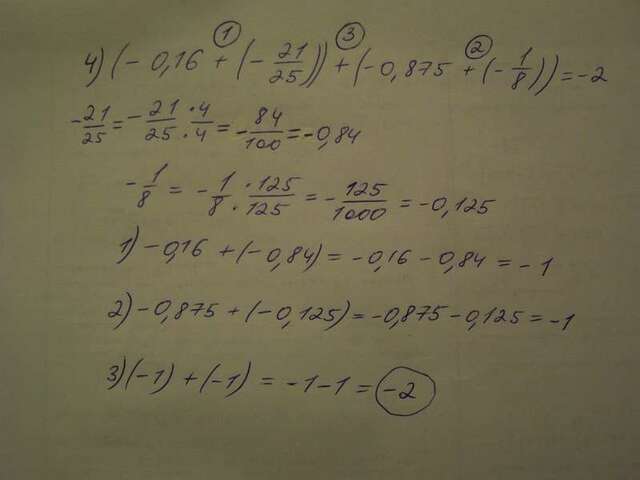 ① ③ ②
4) (- 0,16 + (- 21/25)) + (-0,875 + (- 1/8)) = -2
- 21/25 = - 21 · 4/25 · 4 = - 84/100 = -0,84
- 1/8 = - 1 · 125/8 · 125 = - 125/1000 = -0,125
1) -0,16 + (-0,84) = -0,16 - 0,84 = -1
2) -0,875 + (-0,125) = -0,875 - 0,125 = -1
3) (-1) + (-1) = -1-1 = -2